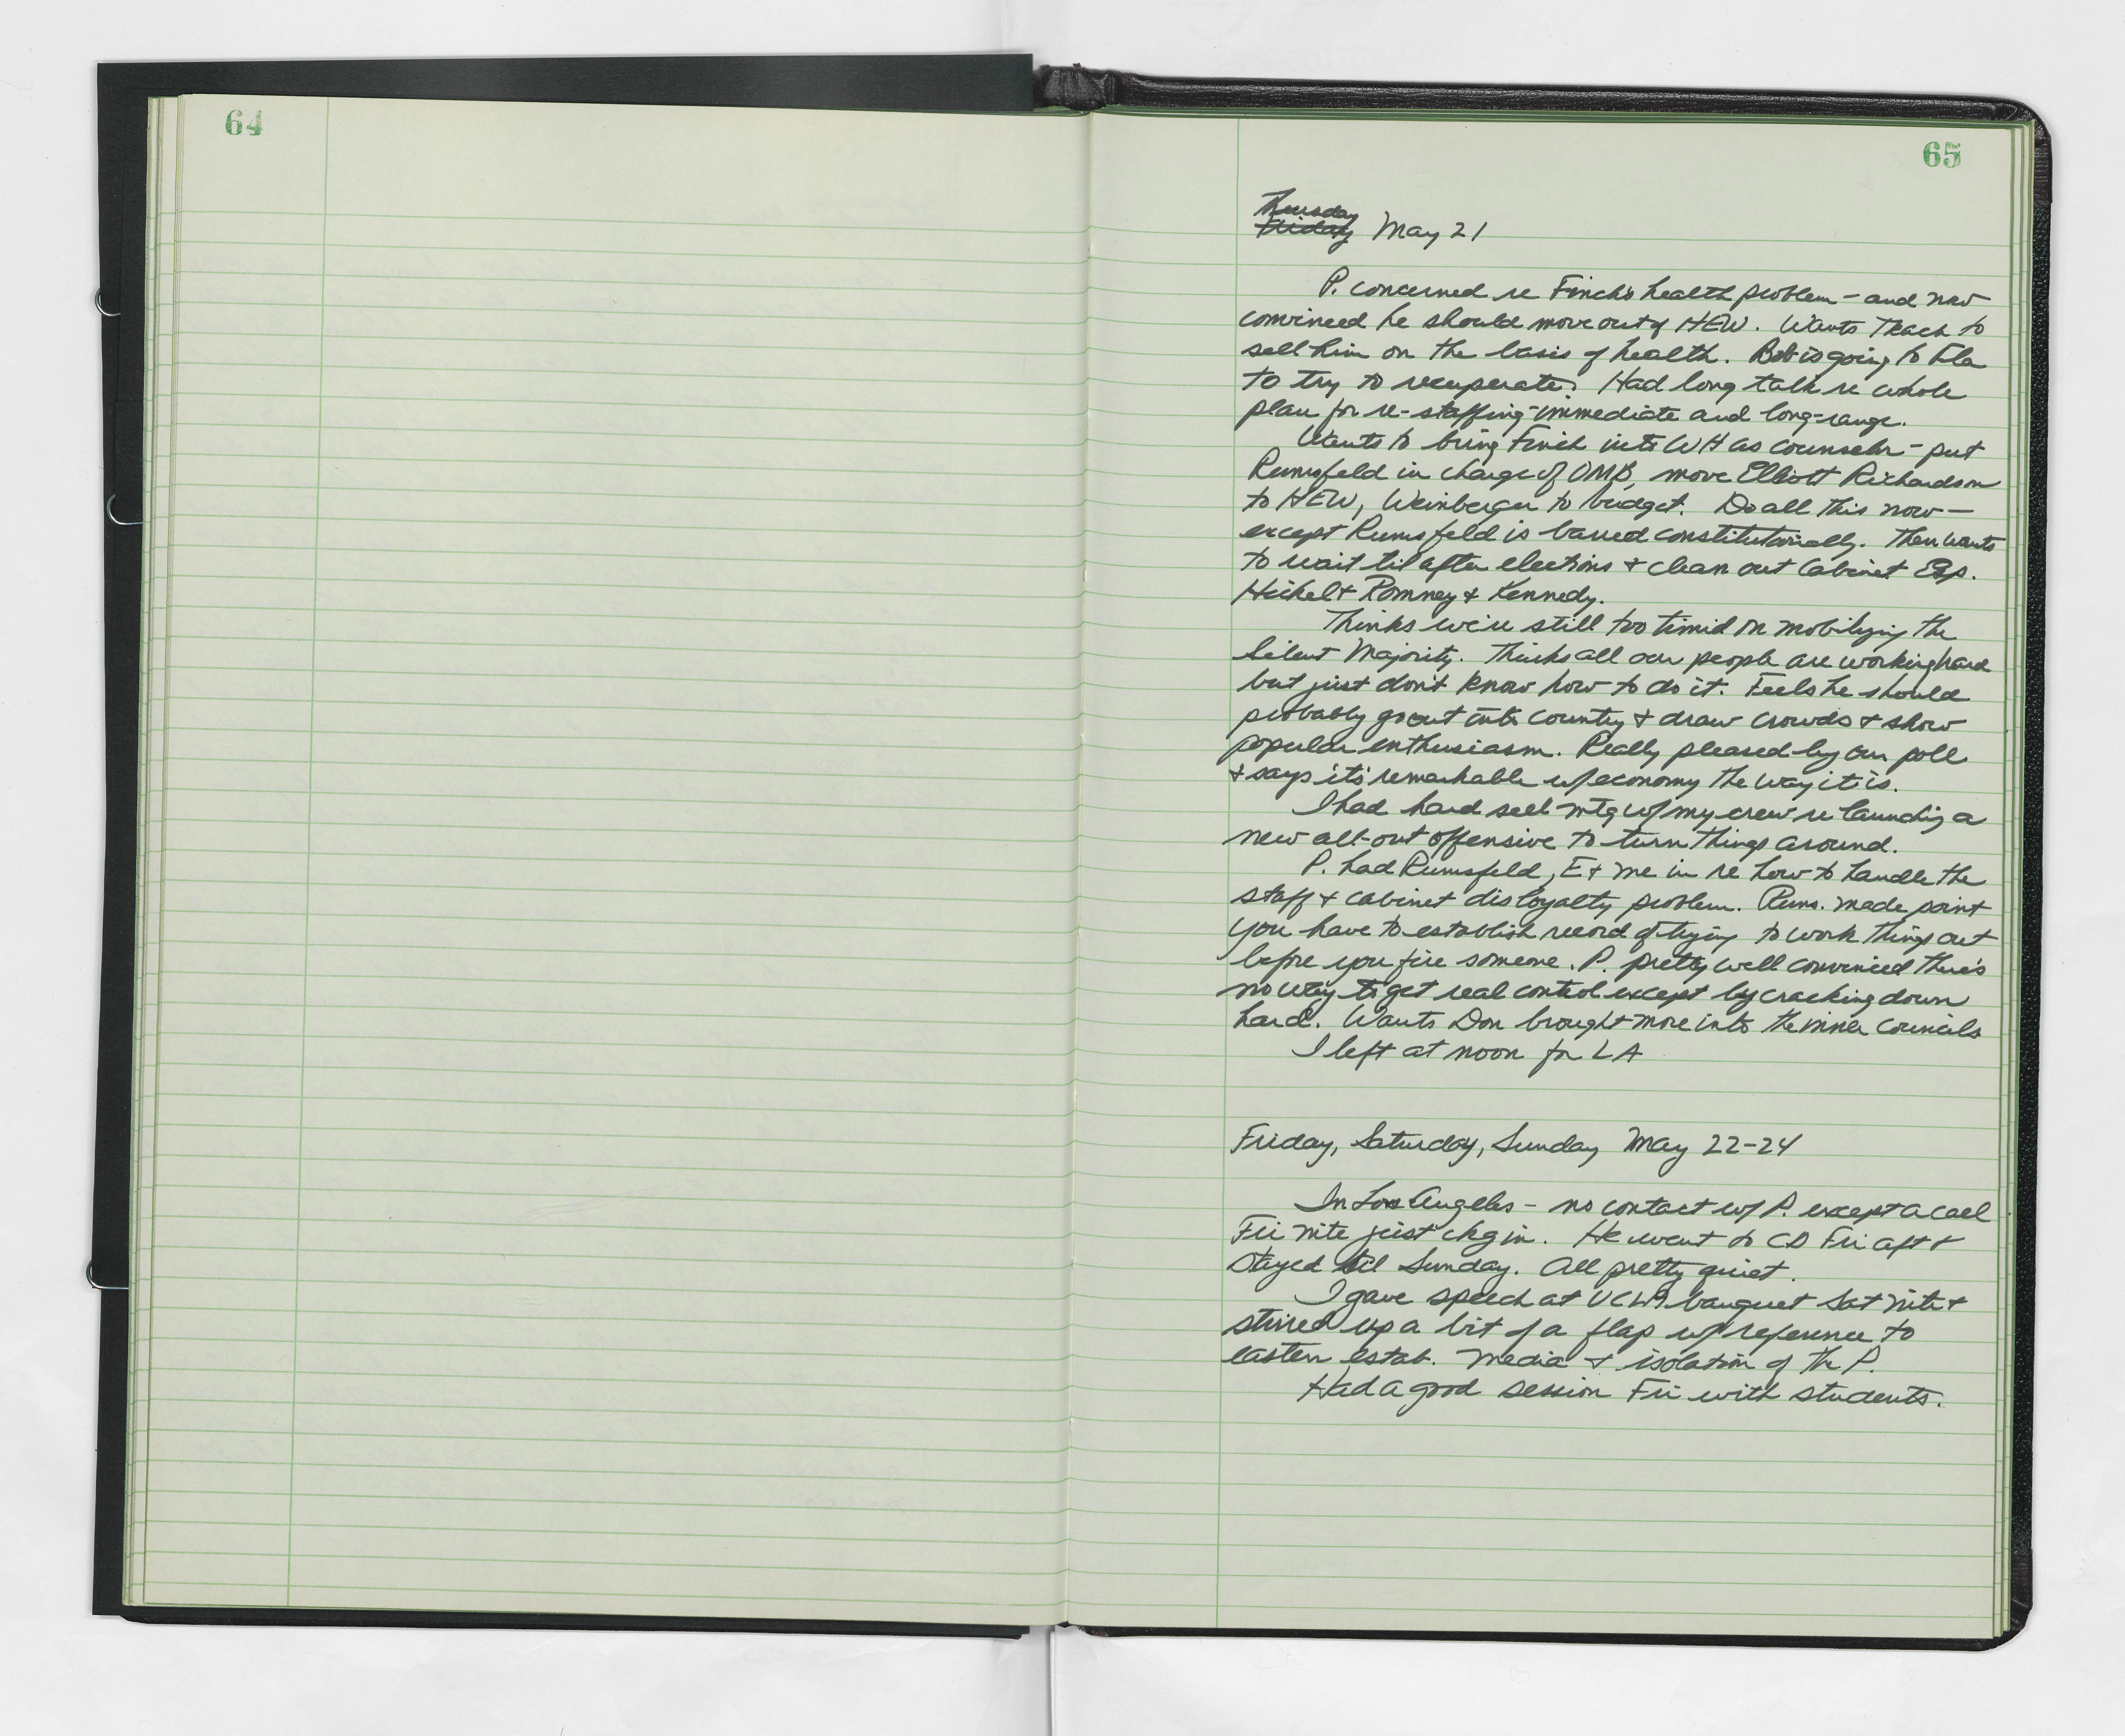 64
65
Thursday
Friday May 21
P. concerned re Finch's health problem - and now
convinced he should move out of HEW. Wants Tkach to
sell him on the basis of health. Bob is going to Fla
to try to recuperate. Had long talk re whole
plan for re-staffing - immediate and long-range.
Wants to bring Finch into WH as counselor - put
Rumsfeld in charge of OMB, move Elliott Richardson
to HEW, Weinberger to budget. Do all this now -
except Rumsfeld is barred constitutionally. Then wants
to wait til after elections & clean out Cabinet Esp.
Hickel & Romney & Kennedy.
Thinks we're still too timid on mobilizing the
Silent Majority. Thinks all our people are working hard
but just don't know how to do it. Feels he should
probably go out into country & draw crowds & show
popular enthusiasm. Really pleased by our poll
& says it's remarkable w/economy the way it is.
I had hard sell mtg w/ my crew re launching a
new all-out offensive to turn things around.
P. had Rumsfeld, E & me in re how to handle the
staff & cabinet disloyalty problem. Rums. made point
you have to establish record of trying to work things out
before you fire someone. P. pretty well convinced there's
no way to get real control except by cracking down
hard. Wants Don brought more into the inner councils
I left at noon for LA
Friday, Saturday, Sunday May 22-24
In Los Angeles - no contact w/ P. except a call
Fri nite just ckg in. He went to CD Fri aft &
stayed til Sunday. All pretty quiet.
I gave speech at UCLA banquet Sat nite &
stirred up a bit of a flap w/ reference to
eastern estab. media & isolation of the P.
Had a good session Fri with students.